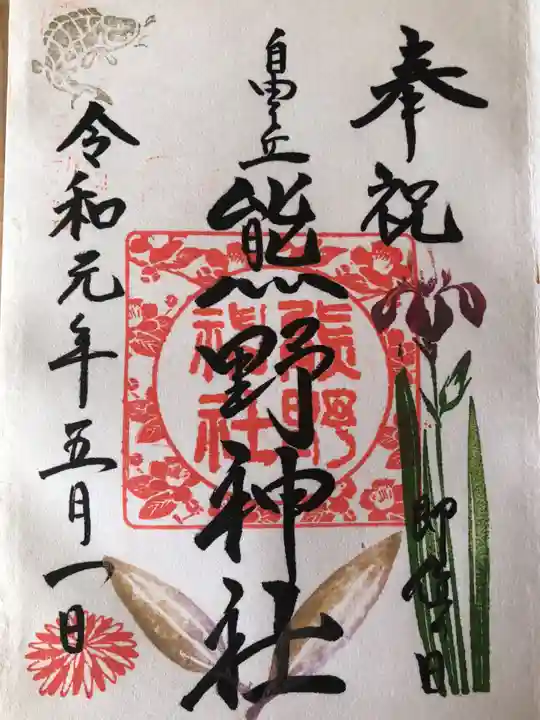 奉祝
即位の日
自由ヶ丘
熊野神社
熊野
神社
令和元年五月一日